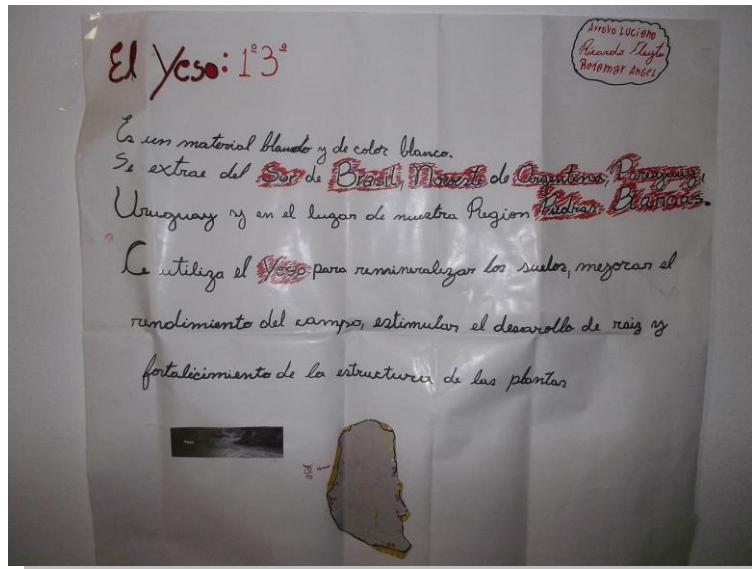 El Yeso: 1º3º
Arroyo Luciano
Ricardo
Betamar Angel
Es un material blando y de color blanco.
Se extrae del Sur de Brasil, Noroeste de Argentina, Paraguay,
Uruguay y en el lugar de nuestra Region Piedras Blancas.
Ce utiliza el Yeso para remineralizar los suelos, mejorar el
rendimiento del campo, estimular el desarollo de raiz y
fortalicimiento de la estructura de las plantas